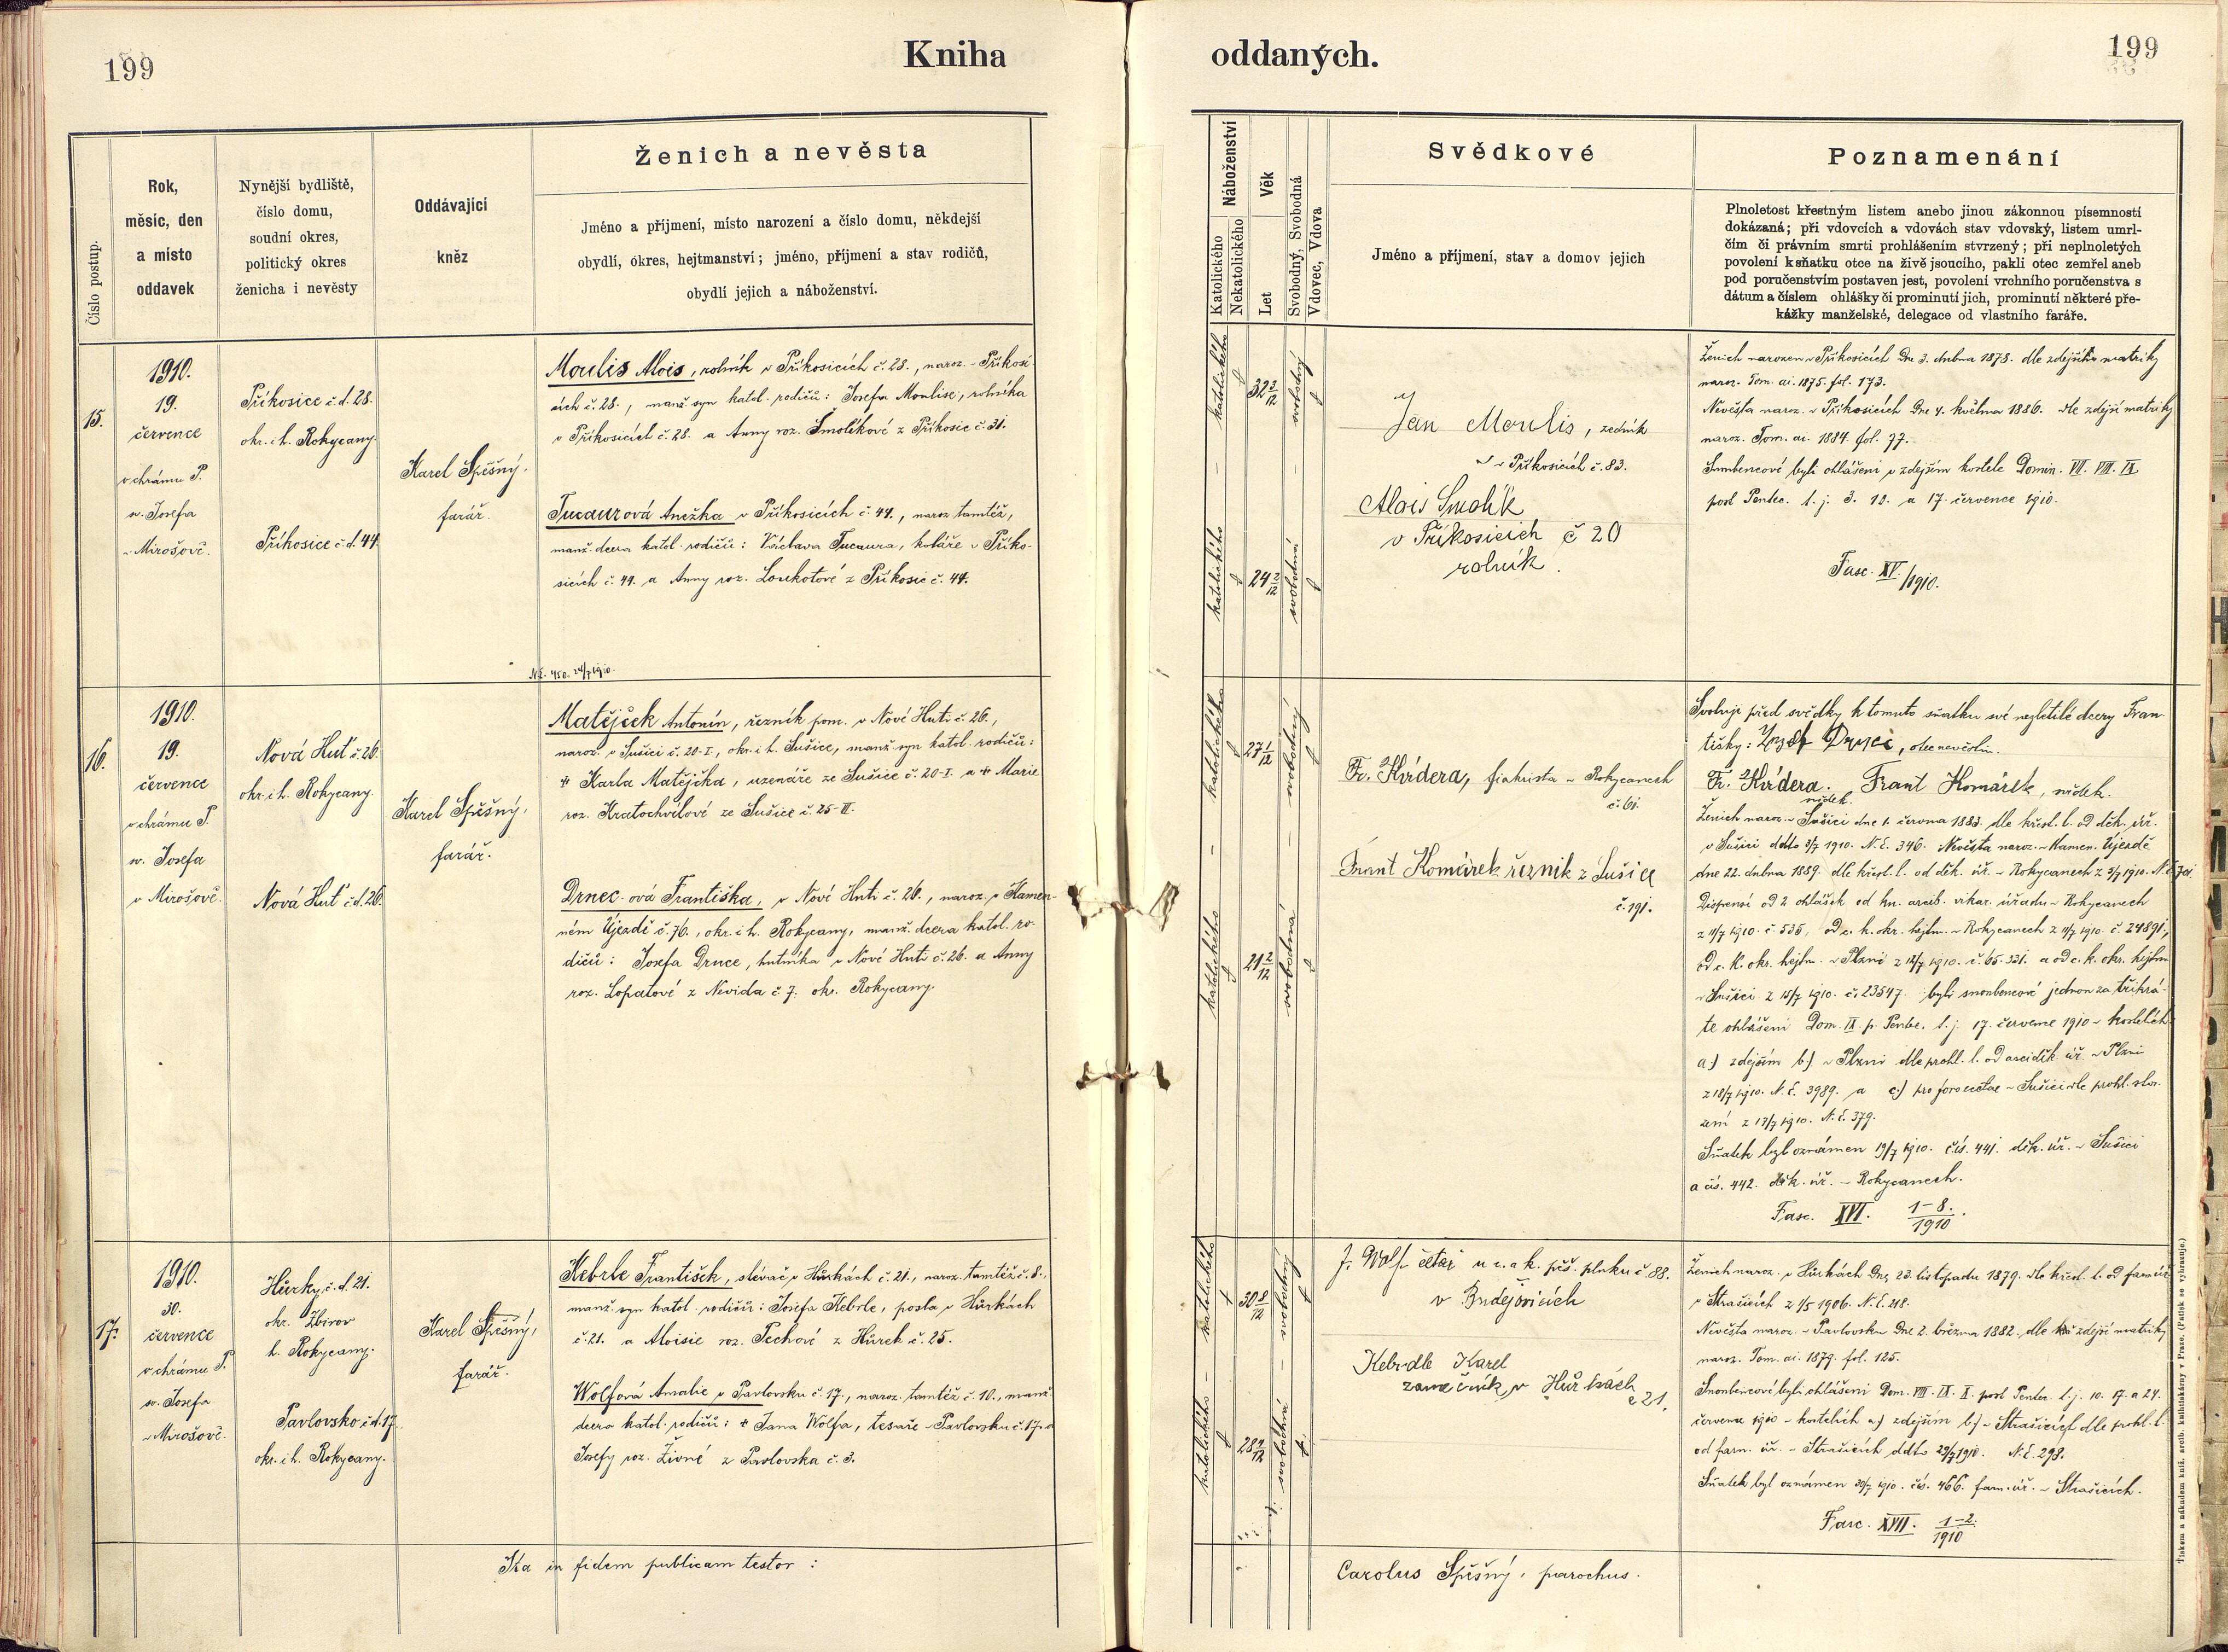 199
Kniha
oddaných.
199
Číslo postup.
Rok,
měsíc, den
a místo
oddavek
Nynější bydliště,
číslo domu,
soudní okres,
politický okres
ženicha i nevěsty
Oddávající
kněz
Ženich a nevěsta
Jméno a příjmení, místo narození a číslo domu, někdejší
obydlí, okres, hejtmanství; jméno, příjmení a stav rodičů,
obydlí jejich a náboženství.
Náboženství
Katolického
Nekatolického
Věk
Let
Svobodný, Svobodná
Vdovec, Vdova
Svědkové
Jméno a příjmení, stav a domov jejich
Poznamenání
Plnoletost křestným listem anebo jinou zákonnou písemností
dokázaná; při vdovcích a vdovách stav vdovský, listem umrl-
čím či právním smrti prohlášením stvrzený; při neplnoletých
povolení k sňatku otce na živě jsoucího, pakli otec zemřel aneb
pod poručenstvím postaven jest, povolení vrchního poručenstva s
dátum a číslem ohlášky či prominutí jich, prominutí některé pře-
kážky manželské, delegace od vlastního faráře.
15.
1910.
19.
července
v chrámu P.
sv. Josefa
v Mirošově.
Příkosice č.d. 28.
okr. i h. Rokycany.
Příkosice č.d. 44.
Karel Spěšný,
farář.
Moulis Alois, rolník v Příkosicích č. 28., naroz. v Příkosi-
cích č. 28., manž. syn katol. rodičů: Josefa Moulise, rolníka
v Příkosicích č. 28. a Anny roz. Smolíkové z Příkosic č. 31.
Tucaurová Anežka v Příkosicích č. 44., naroz. tamtéž,
manž. dcera katol. rodičů: Václava Tucaura, koláře v Příko-
sicích č. 44. a Anny roz. Loukotové z Příkosic č. 44.
N.č. 450. 24/7 1910.
katolického
32 3/12
svobodný
katolického
24 2/12
svobodná
Jan Moulis, zedník
v Příkosicích č. 83.
Alois Smolík
v Příkosicích č 20
rolník.
Ženich narozen v Příkosicích dne 3. dubna 1878. dle zdejší matriky
naroz. Tom. ai. 1875. fol. 173.
Nevěsta naroz. v Příkosicích dne 4. května 1886. dle zdejší matriky
naroz. Tom. ai. 1884. fol. 77.
Snoubencové byli ohlášeni v zdejším kostele Domin. VII. VIII. IX.
post Pentec. t. j. 3. 10. a 17. července 1910.
Fasc. XV./1910.
16.
1910.
19.
července
v chrámu P.
sv. Josefa
v Mirošově.
Nová Huť č. 26.
okr. i h. Rokycany.
Nová Huť č.d. 26.
Karel Spěšný,
farář.
Matějček Antonín, řezník pom. v Nové Huti č. 26.,
naroz. v Sušici č. 20-I., okr. i h. Sušice, manž. syn katol. rodičů:
✝ Karla Matějčka, uzenáře ze Sušice č. 20-I. a ✝ Marie
roz. Kratochvílové ze Sušice č. 25-II.
Drnec-ová Františka, v Nové Huti č. 26., naroz. v Kamen-
ném Újezdě č. 76., okr. i h. Rokycany, manž. dcera katol. ro-
dičů: Josefa Drnce, hutníka v Nové Huti č. 26. a Anny
roz. Lopatové z Nevida č. 7. okr. Rokycany.
katolického
27 1/12
svobodný
katolického
21 2/12
svobodná
Fr. Kvídera, fiakrista v Rokycanech
č. 61.
Frant Komárek řezník z Sušice
č. 191.
Svoluje před svědky k tomuto sňatku své nezletilé dcery Fran-
tišky: Drnec, otec nevěstin.
Fr. Kvídera. Frant Komárek, svědek.
svědek.
Ženich naroz. v Sušici dne 1. června 1883. dle křest. l. od děk. úř.
v Sušici ddto 3/7 1910. N.č. 346. Nevěsta naroz. v Kamen. Újezdě
dne 22. dubna 1889. dle křest. l. od děk. úř. v Rokycanech z 3/7 1910.
Dispensí od 2 ohlášek od kn. arcib. vikar. úřadu v Rokycanech
z 11/7 1910. č. 535, od c. k. okr. hejtm. v Rokycanech z 11/7 1910. č. 24891,
od c. k. okr. hejtm. v Plzni z 12/7 1910. č. 65.321. a od c. k. okr. hejtm
v Sušici z 15/7 1910. č. 23547. byli snoubencové jednou za třikrá-
te ohlášeni Dom. IX. p. Pentec. t. j. 17. července 1910 v kostelích
a.) zdejším b.) v Plzni dle prohl. l. od arciděk. úř. v Plzni
z 18/7 1910. N.č. 3989. a c.) pro foro v Sušici dle prohl.
z 17/7 1910. N.č. 379.
Sňatek byl oznámen 19/7 1910. čís. 441. děk. úř. v Sušici
a čís. 442. děk. úř. v Rokycanech.
Fasc. XVI. 1-8./1910.
17.
1910.
30.
července
v chrámu P.
sv. Josefa
v Mirošově.
Hůrky č.d. 21.
okr. Zbirov
h. Rokycany.
Pavlovsko č.d. 17.
okr. i h. Rokycany.
Karel Spěšný,
farář.
Kebrle František, slévač v Hůrkách č. 21., naroz. tamtéž č. 8.,
manž. syn katol. rodičů: Josefa Kebrle, posla v Hůrkách
č. 21. a Aloisie roz. Pechové z Hůrek č. 25.
Wolfová Amalie v Pavlovsku č. 17., naroz. tamtéž č. 10., manž.
dcera katol. rodičů: ✝ Jana Wolfa, tesaře v Pavlovsku č. 17. a
Josefy roz. Živné z Pavlovska č. 3.
katolického
30 8/12
svobodný
katolického
28 4/12
svobodná
J. Wolf četař u c. a k. pěš. pluku č. 88.
v Budějovicích
Kebrdle Karel
zámečník v Hůrkách
č 21.
Ženich naroz. v Hůrkách dne 23. listopadu 1879. dle křest. l. od farn. úř.
v Strašicích z 1/5 1906. N.č. 218.
Nevěsta naroz. v Pavlovsku dne 2. března 1882. dle zdejší matriky
naroz. Tom. ai. 1879. fol. 125.
Snoubencové byli ohlášeni Dom. VIII. IX. X. post Pentec. t. j. 10. 17. a 24.
července 1910 v kostelích a.) zdejším b.) v Strašicích dle prohl. l.
od farn. úř. v Strašicích ddto 29/7 1910. N.č. 298.
Sňatek byl oznámen 30/7 1910. čís. 466. farn. úř. v Strašicích.
Fasc. XVII. 1-2./1910
Ita in fidem publicam testor:
Carolus Spěšný, parochus.
Tiskem a nákladem kníž. arcib. knihtiskárny v Praze. (Patisk se vyhrazuje.)